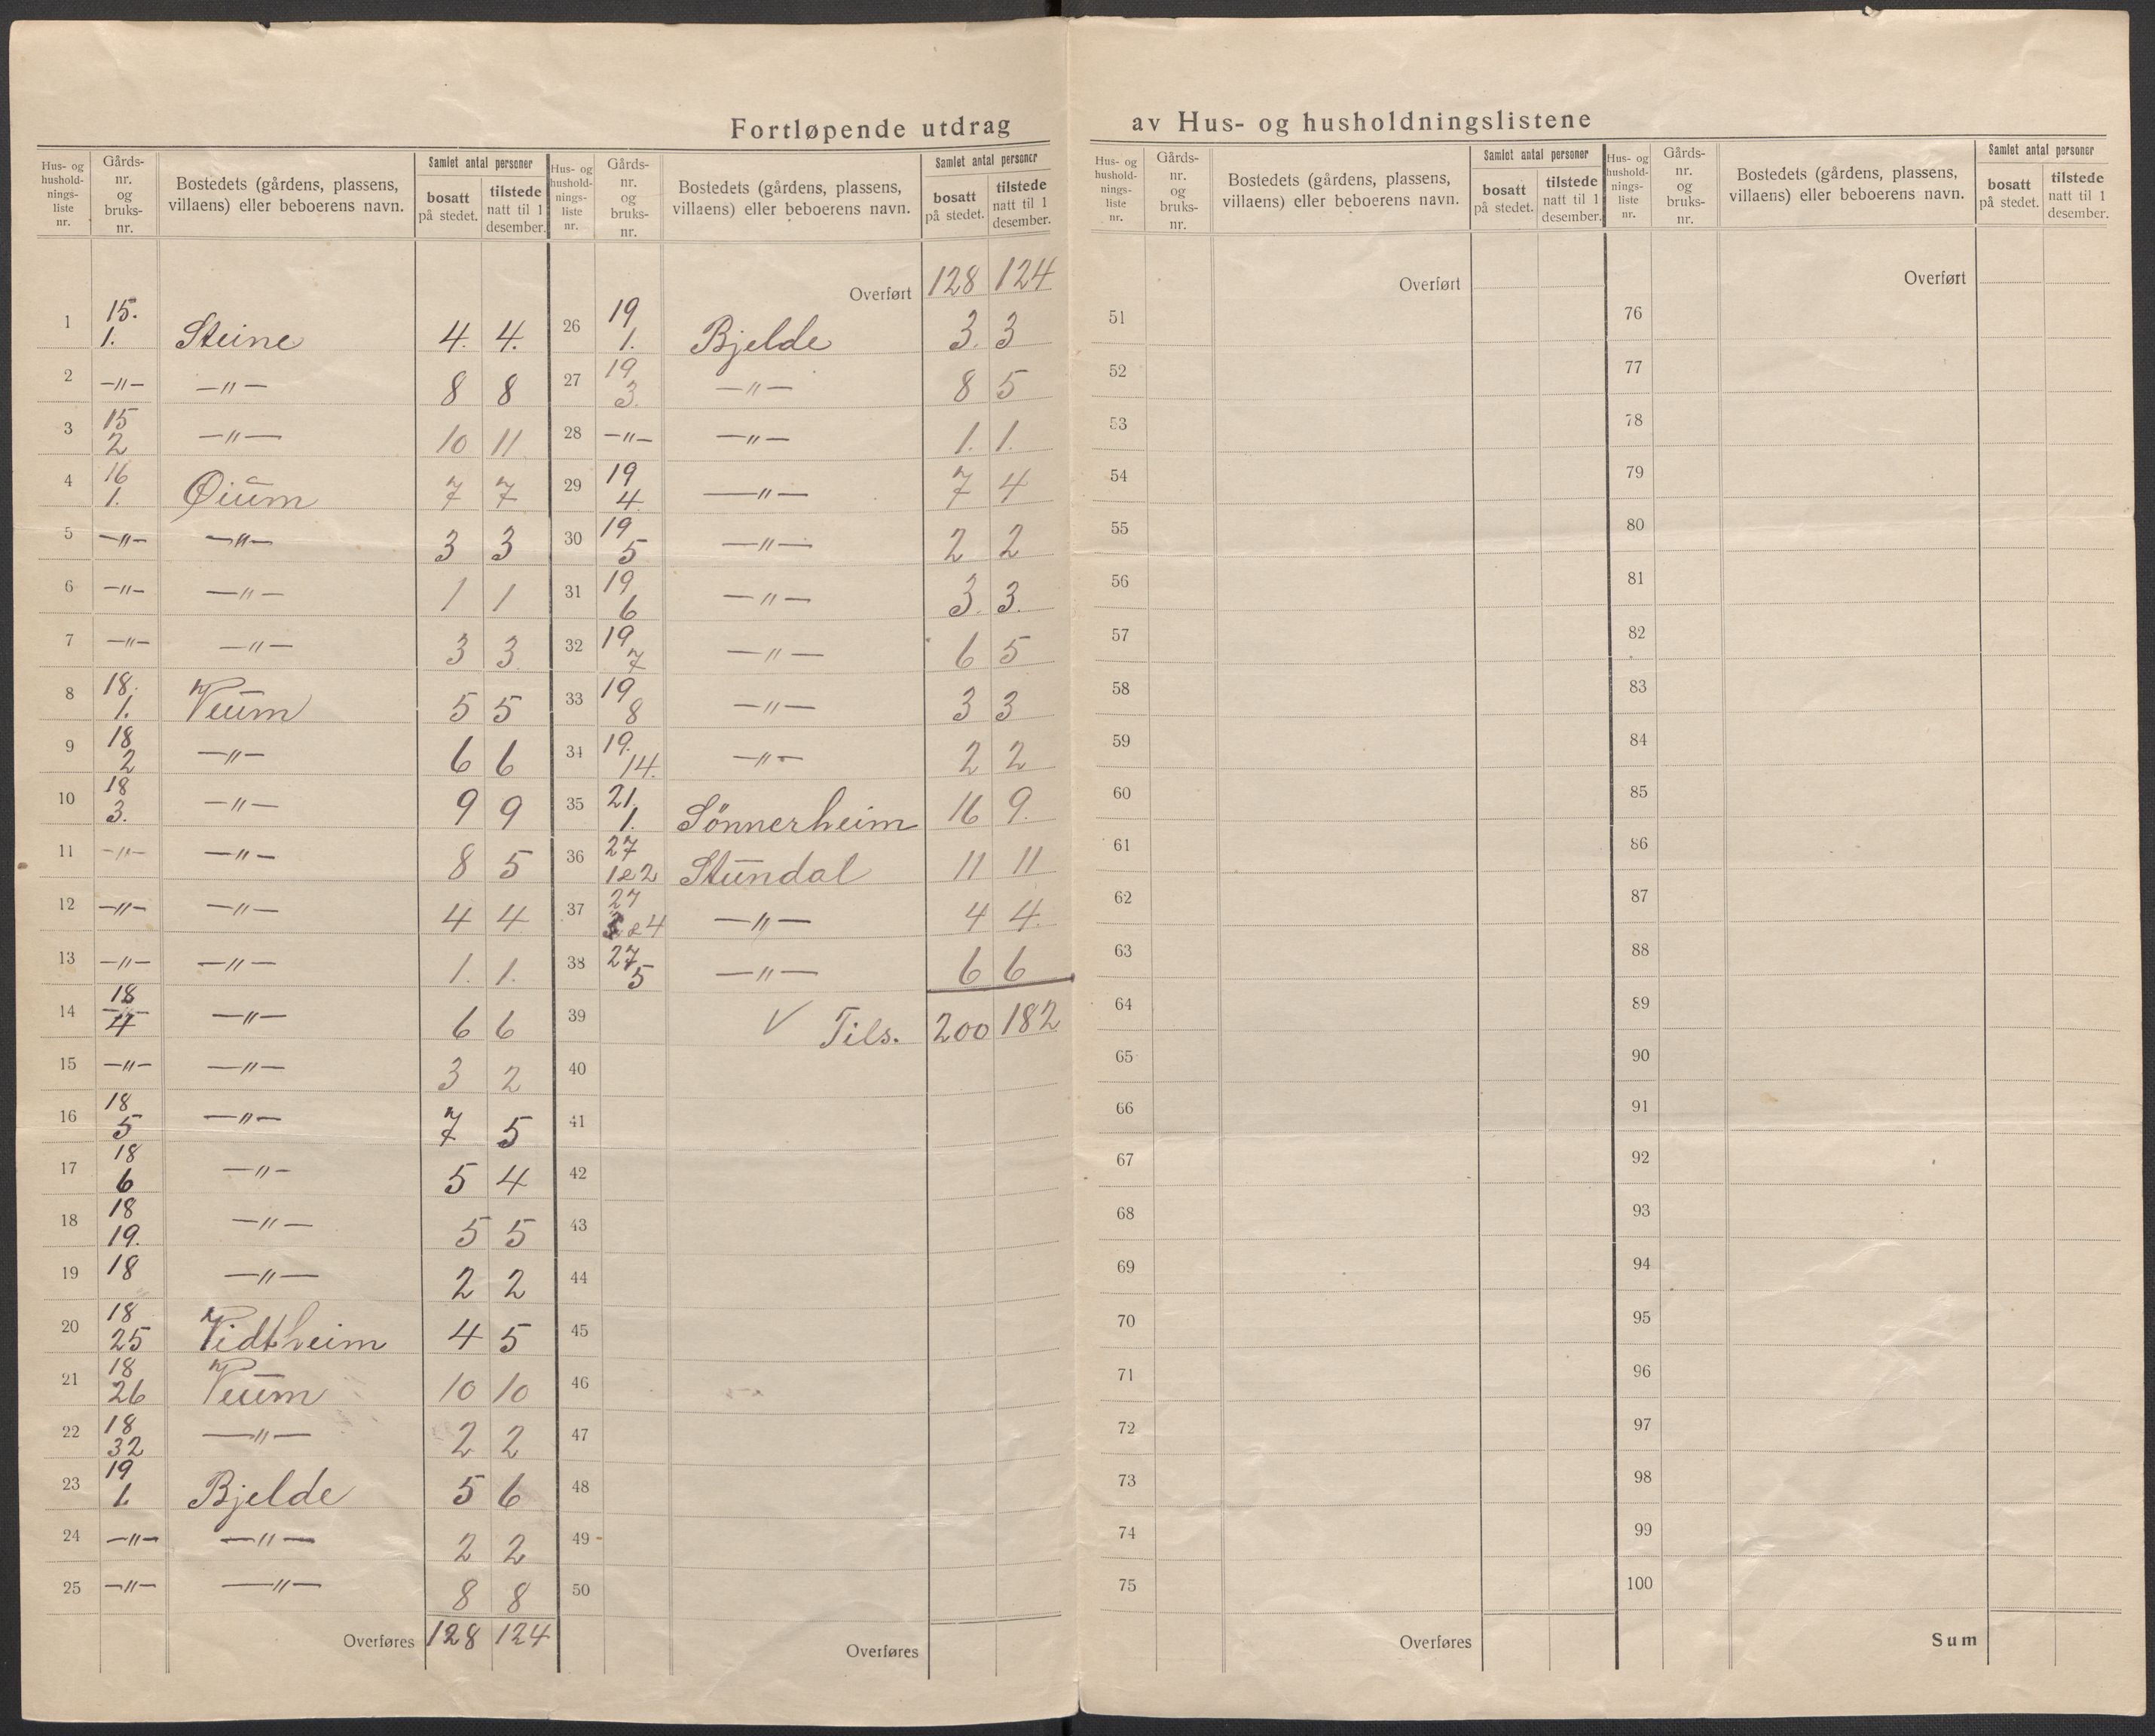 Fortløpende utdrag av Hus- og husholdningslistene
Hus- og husholdnings-liste nr. Gårds-nr. og bruks-nr. Bostedets (gårdens, plassens, villaens) eller beboerens navn. Samlet antal personer bosatt på stedet. tilstede natt til 1 desember.
1 15. 1. Steine 4. 4.
2 —"— —"— 8 8
3 15 2 —"— 10 11
4 16 1. Øium 7 7
5 —"— —"— 3 3
6 —"— —"— 1 1
7 —"— —"— 3 3
8 18. 1. Veum 5 5
9 18 2 —"— 6 6
10 18 3. —"— 9 9
11 —"— —"— 8 5
12 —"— —"— 4 4
13 —"— —"— 1. 1.
14 18 4 —"— 6 6
15 —"— —"— 3 2
16 18 5 —"— 7 5
17 18 6 —"— 5 4
18 18 19. —"— 5 5
19 18 —"— 2 2
20 18 25 Vidtheim 4 5
21 18 26 Veum 10 10
22 18 32 —"— 2 2
23 19 1. Bjelde 5 6
24 —"— —"— 2 2
25 —"— —"— 8 8
Overføres 128 124
Hus- og husholdnings-liste nr. Gårds-nr. og bruks-nr. Bostedets (gårdens, plassens, villaens) eller beboerens navn. Samlet antal personer bosatt på stedet. tilstede natt til 1 desember.
Overført 128 124
26 19 1. Bjelde 3. 3
27 19 3. —"— 8 5
28 —"— —"— 1. 1.
29 19 4. —"— 7 4
30 19 5 —"— 2 2
31 19 6 —"— 3. 3.
32 19 7 —"— 6 5
33 19 8 —"— 3 3
34 19. 14. —"— 2 2
35 21. 1. Sönnerheim 16 9.
36 27 1&2 Stundal 11 11
37 27 3&4 —"— 4 4.
38 27 5 —"— 6 6
39 ✓ Tils. 200 182
40
41
42
43
44
45
46
47
48
49
50
Overføres
Hus- og husholdnings-liste nr. Gårds-nr. og bruks-nr. Bostedets (gårdens, plassens, villaens) eller beboerens navn. Samlet antal personer bosatt på stedet. tilstede natt til 1 desember.
Overført
51
52
53
54
55
56
57
58
59
60
61
62
63
64
65
66
67
68
69
70
71
72
73
74
75
Overføres
Hus- og husholdnings-liste nr. Gårds-nr. og bruks-nr. Bostedets (gårdens, plassens, villaens) eller beboerens navn. Samlet antal personer bosatt på stedet. tilstede natt til 1 desember.
Overført
76
77
78
79
80
81
82
83
84
85
86
87
88
89
90
91
92
93
94
95
96
97
98
99
100
Sum